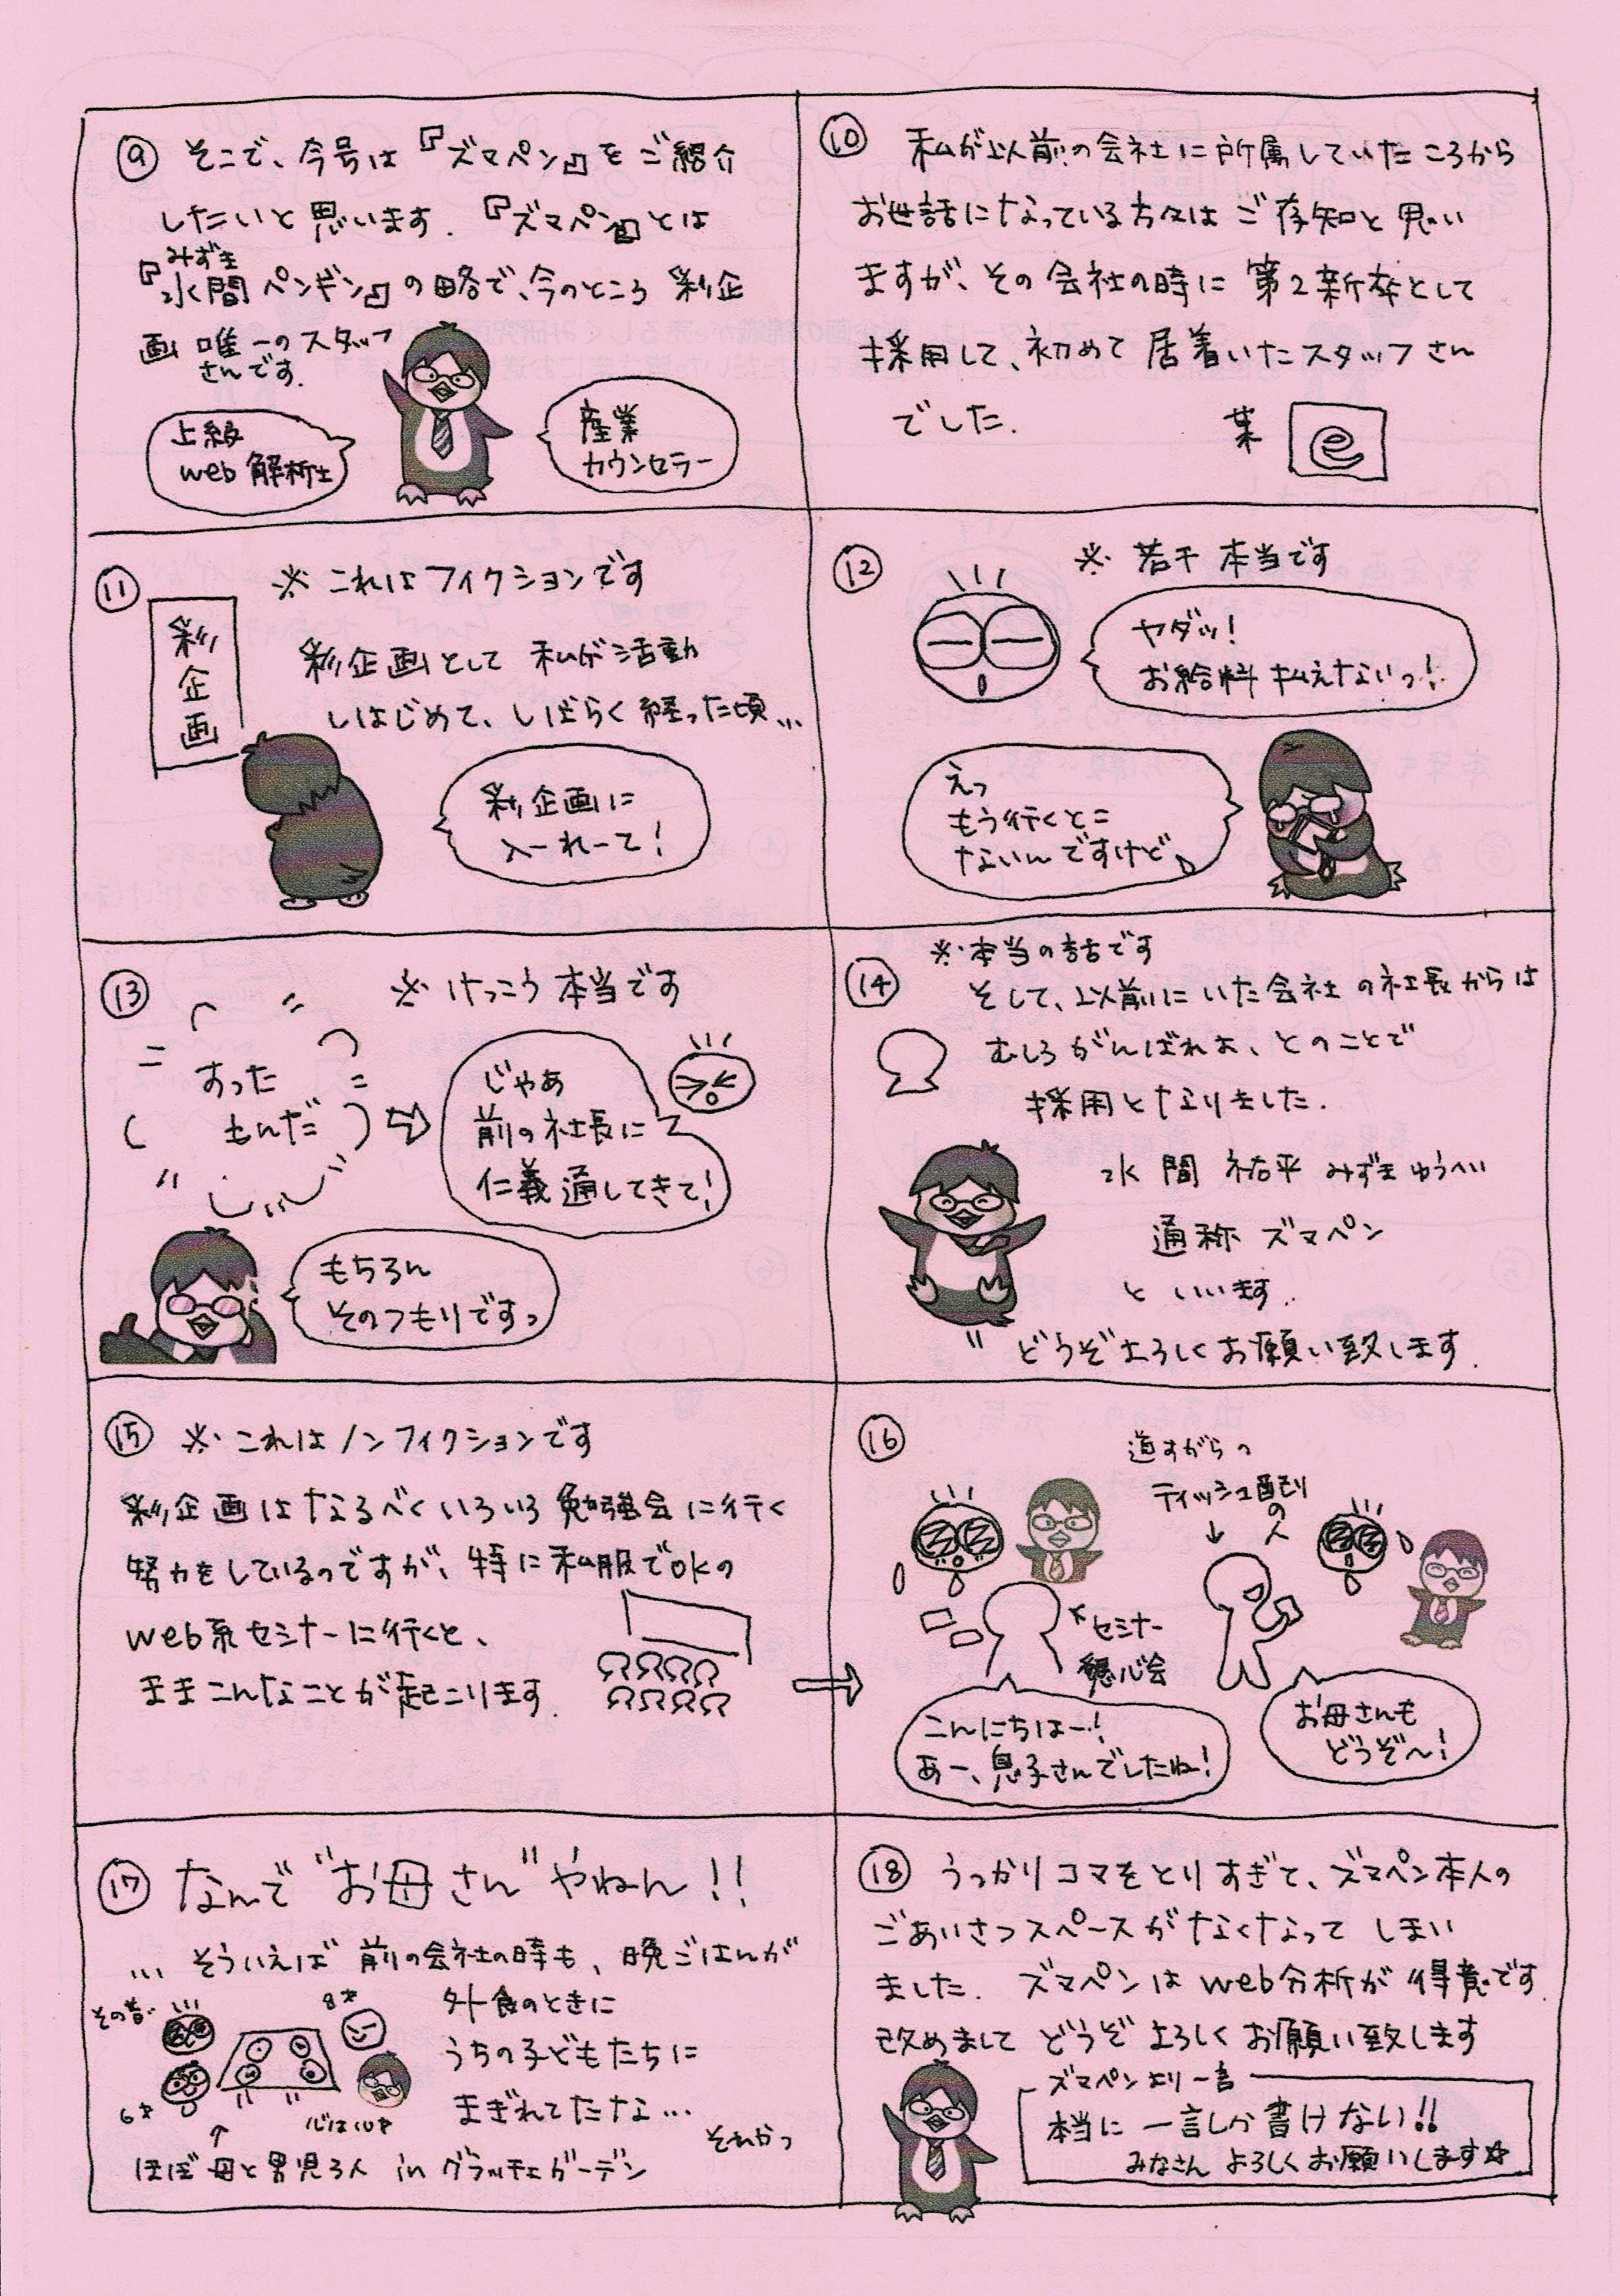 ⑨ そこで、今号は『ズマペン』をご紹介
したいと思います. 『ズマペン』とは
みずま
『水間ペンギン』の略で、今のところ 彩企
画 唯一のスタッフ
さんです.
上級
web解析士
産業
カウンセラー
⑩ 私が以前の会社に所属していたころから
お世話になっている方々はご存知と思い
ますが、その会社の時に 第2新卒として
採用して、初めて居着いたスタッフさん
でした.
某 e
⑪ ※ これはフィクションです
彩企画
彩企画として 私が活動
しはじめて、しばらく経った頃…
彩企画に
入ーれーて!
⑫ ※ 若干 本当です
ヤダッ!
お給料 払えないっ!
えっ
もう行くとこ
ないんですけど
⑬ ※ けっこう 本当です
すった
もんだ
じゃあ
前の社長に
仁義通してきて!
もちろん
そのつもりですっ
⑭ ※本当の話です
そして、以前にいた会社の社長からは
むしろがんばれよ、とのことで
採用となりました.
水間 祐平 みずまゆうへい
通称 ズマペン
といいます.
どうぞよろしくお願い致します.
⑮ ※ これはノンフィクションです
彩企画はなるべくいろいろ勉強会に行く
努力をしているのですが、特に私服でOKの
web系セミナーに行くと、
ままこんなことが起こります.
⑯ 道すがらの
ティッシュ配り
の人
セミナー
懇心会
こんにちはー!
あー、息子さんでしたね!
お母さんも
どうぞ〜!
⑰ なんで"お母さん"やねん!!
… そういえば 前の会社の時も、晩ごはんが
外食のときに
うちの子どもたちに
まぎれてたな…
それかっ
その昔
8才
6才
心は10才
ほぼ 母と男児3人 in グラッチェガーデン
⑱ うっかりコマをとりすぎて、ズマペン本人の
ごあいさつスペースがなくなって しまい
ました. ズマペンは web分析が得意です.
改めまして どうぞよろしくお願い致します
ズマペンより一言
本当に 一言しか書けない!!
みなさん よろしくお願いします☆